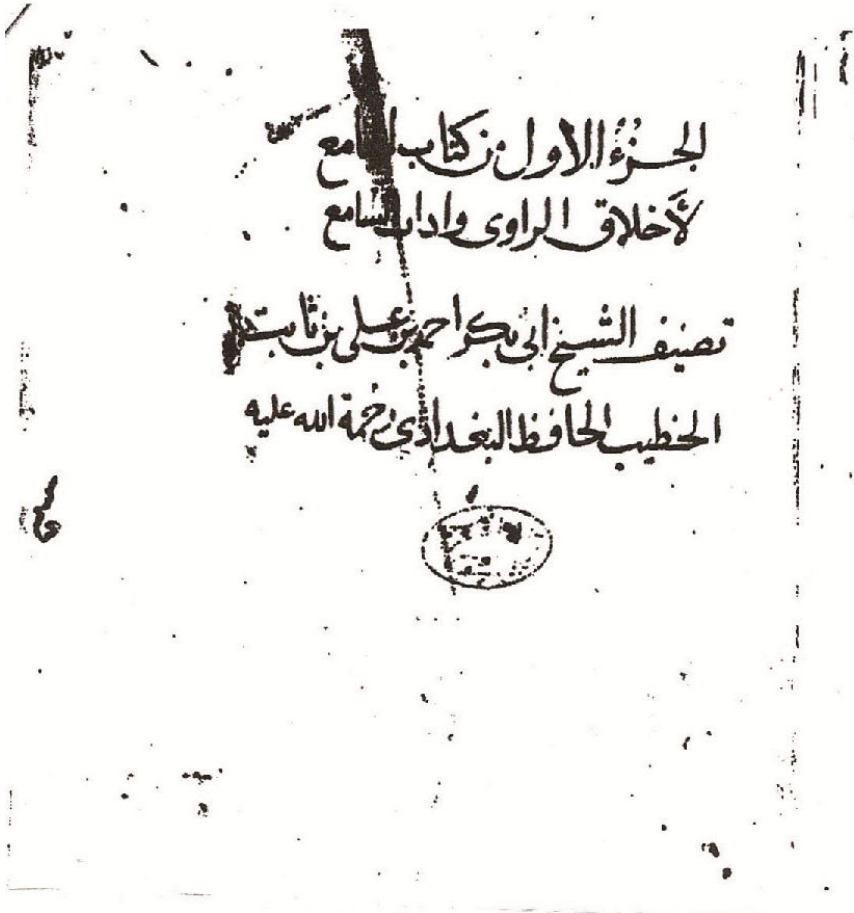 الجزء الأول من كتاب الجامع
لأخلاق الراوى واداب السامع
تصنيف الشيخ ابى بكر احمد بن على بن ثابت
الخطيب الحافظ البغدادى رحمة الله عليه